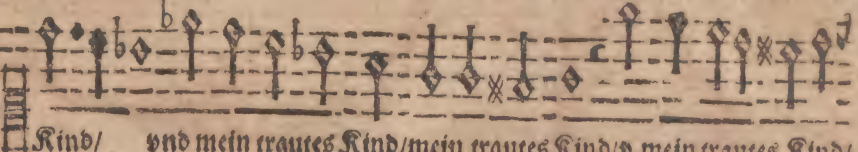 Kind/ vnd mein trautes Kind/mein trautes Kind/ṽ mein trautes Kind/